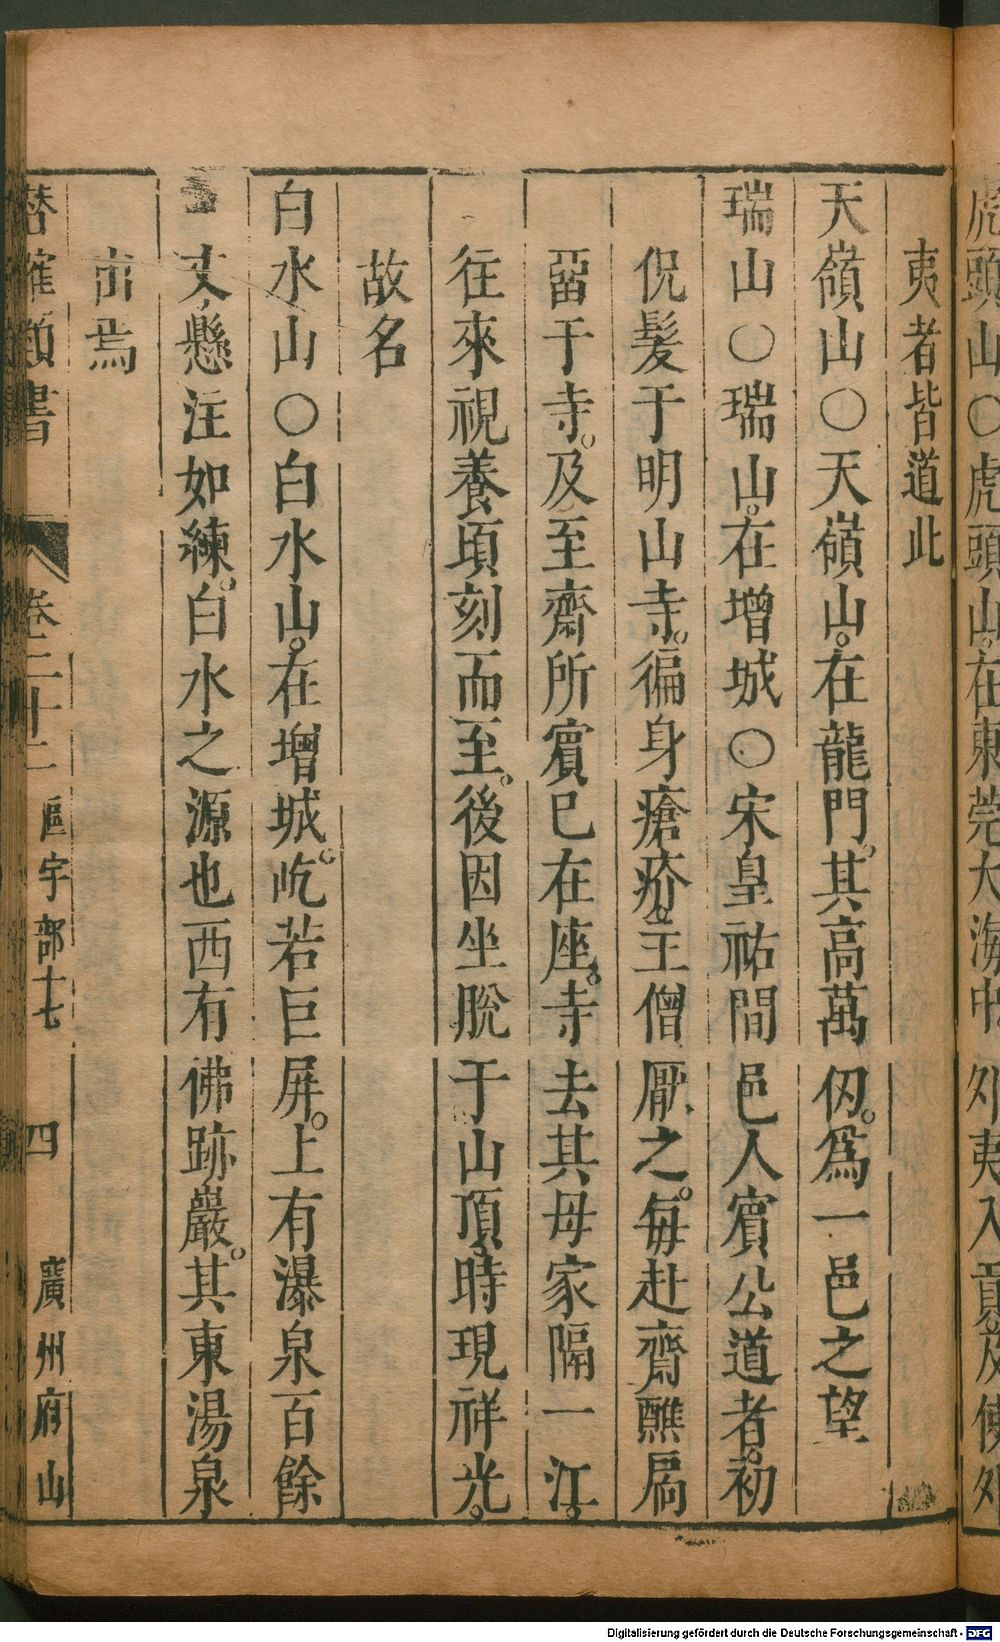 虎頭山○虎頭山。在東莞大海中外夷入貢及使外
夷者皆道此
天嶺山○天嶺山。在龍門。其高萬仭。爲一邑之望
瑞山○瑞山。在增城○宋皇祐間邑人賓公道者。初
侻髪于明山寺。徧身瘡疥。主僧厭之。每赴齋醮扃
畱于寺。及至齋所賓已在座。寺去其母家隔一江。
往來視養頃刻而至。後因坐脫于山頂。時現祥光。
故名
白水山○白水山。在增城。屹若巨屏。上有瀑泉百餘
丈。懸注如練。白水之源也西有佛跡巖。其東湯泉
出焉
潛確類書
卷三十二 區宇部十七 四 廣州府山
Digitalisierung gefördert durch die Deutsche Forschungsgemeinschaft - DFG